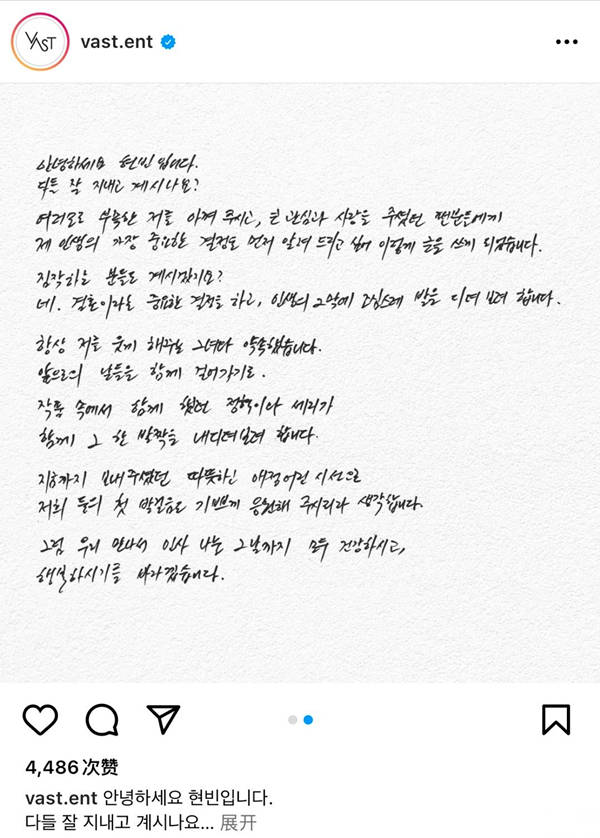 VAST
vast.ent
안녕하세요 현빈입니다.
다들 잘 지내고 계시나요?
여러모로 부족한 저를 아껴 주시고, 큰 관심과 사랑을 주셨던 팬분들에게
제 인생의 가장 중요한 결정도 먼저 알려 드리고 싶어 이렇게 글을 쓰게 되었습니다.
짐작하는 분들도 계시겠지요?
네. 결혼이라는 중요한 결정을 하고, 인생의 2막에 조심스레 발을 디뎌 보려 합니다.
항상 저를 웃게 해주는 그녀와 약속했습니다.
앞으로의 날들을 함께 걸어가기로.
작품 속에서 함께 했던 정혁이와 세리가
함께 그 한 발짝을 내디뎌보려 합니다.
지금까지 보내주셨던 따뜻하신 애정어린 시선으로
저희 둘의 첫 발걸음도 기쁘게 응원해 주시리라 생각합니다.
그럼 우리 만나서 인사 나눌 그날까지 모두 건강하시고,
행복하시기를 바라겠습니다.
4,486次赞
vast.ent 안녕하세요 현빈입니다.
다들 잘 지내고 계시나요... 展开